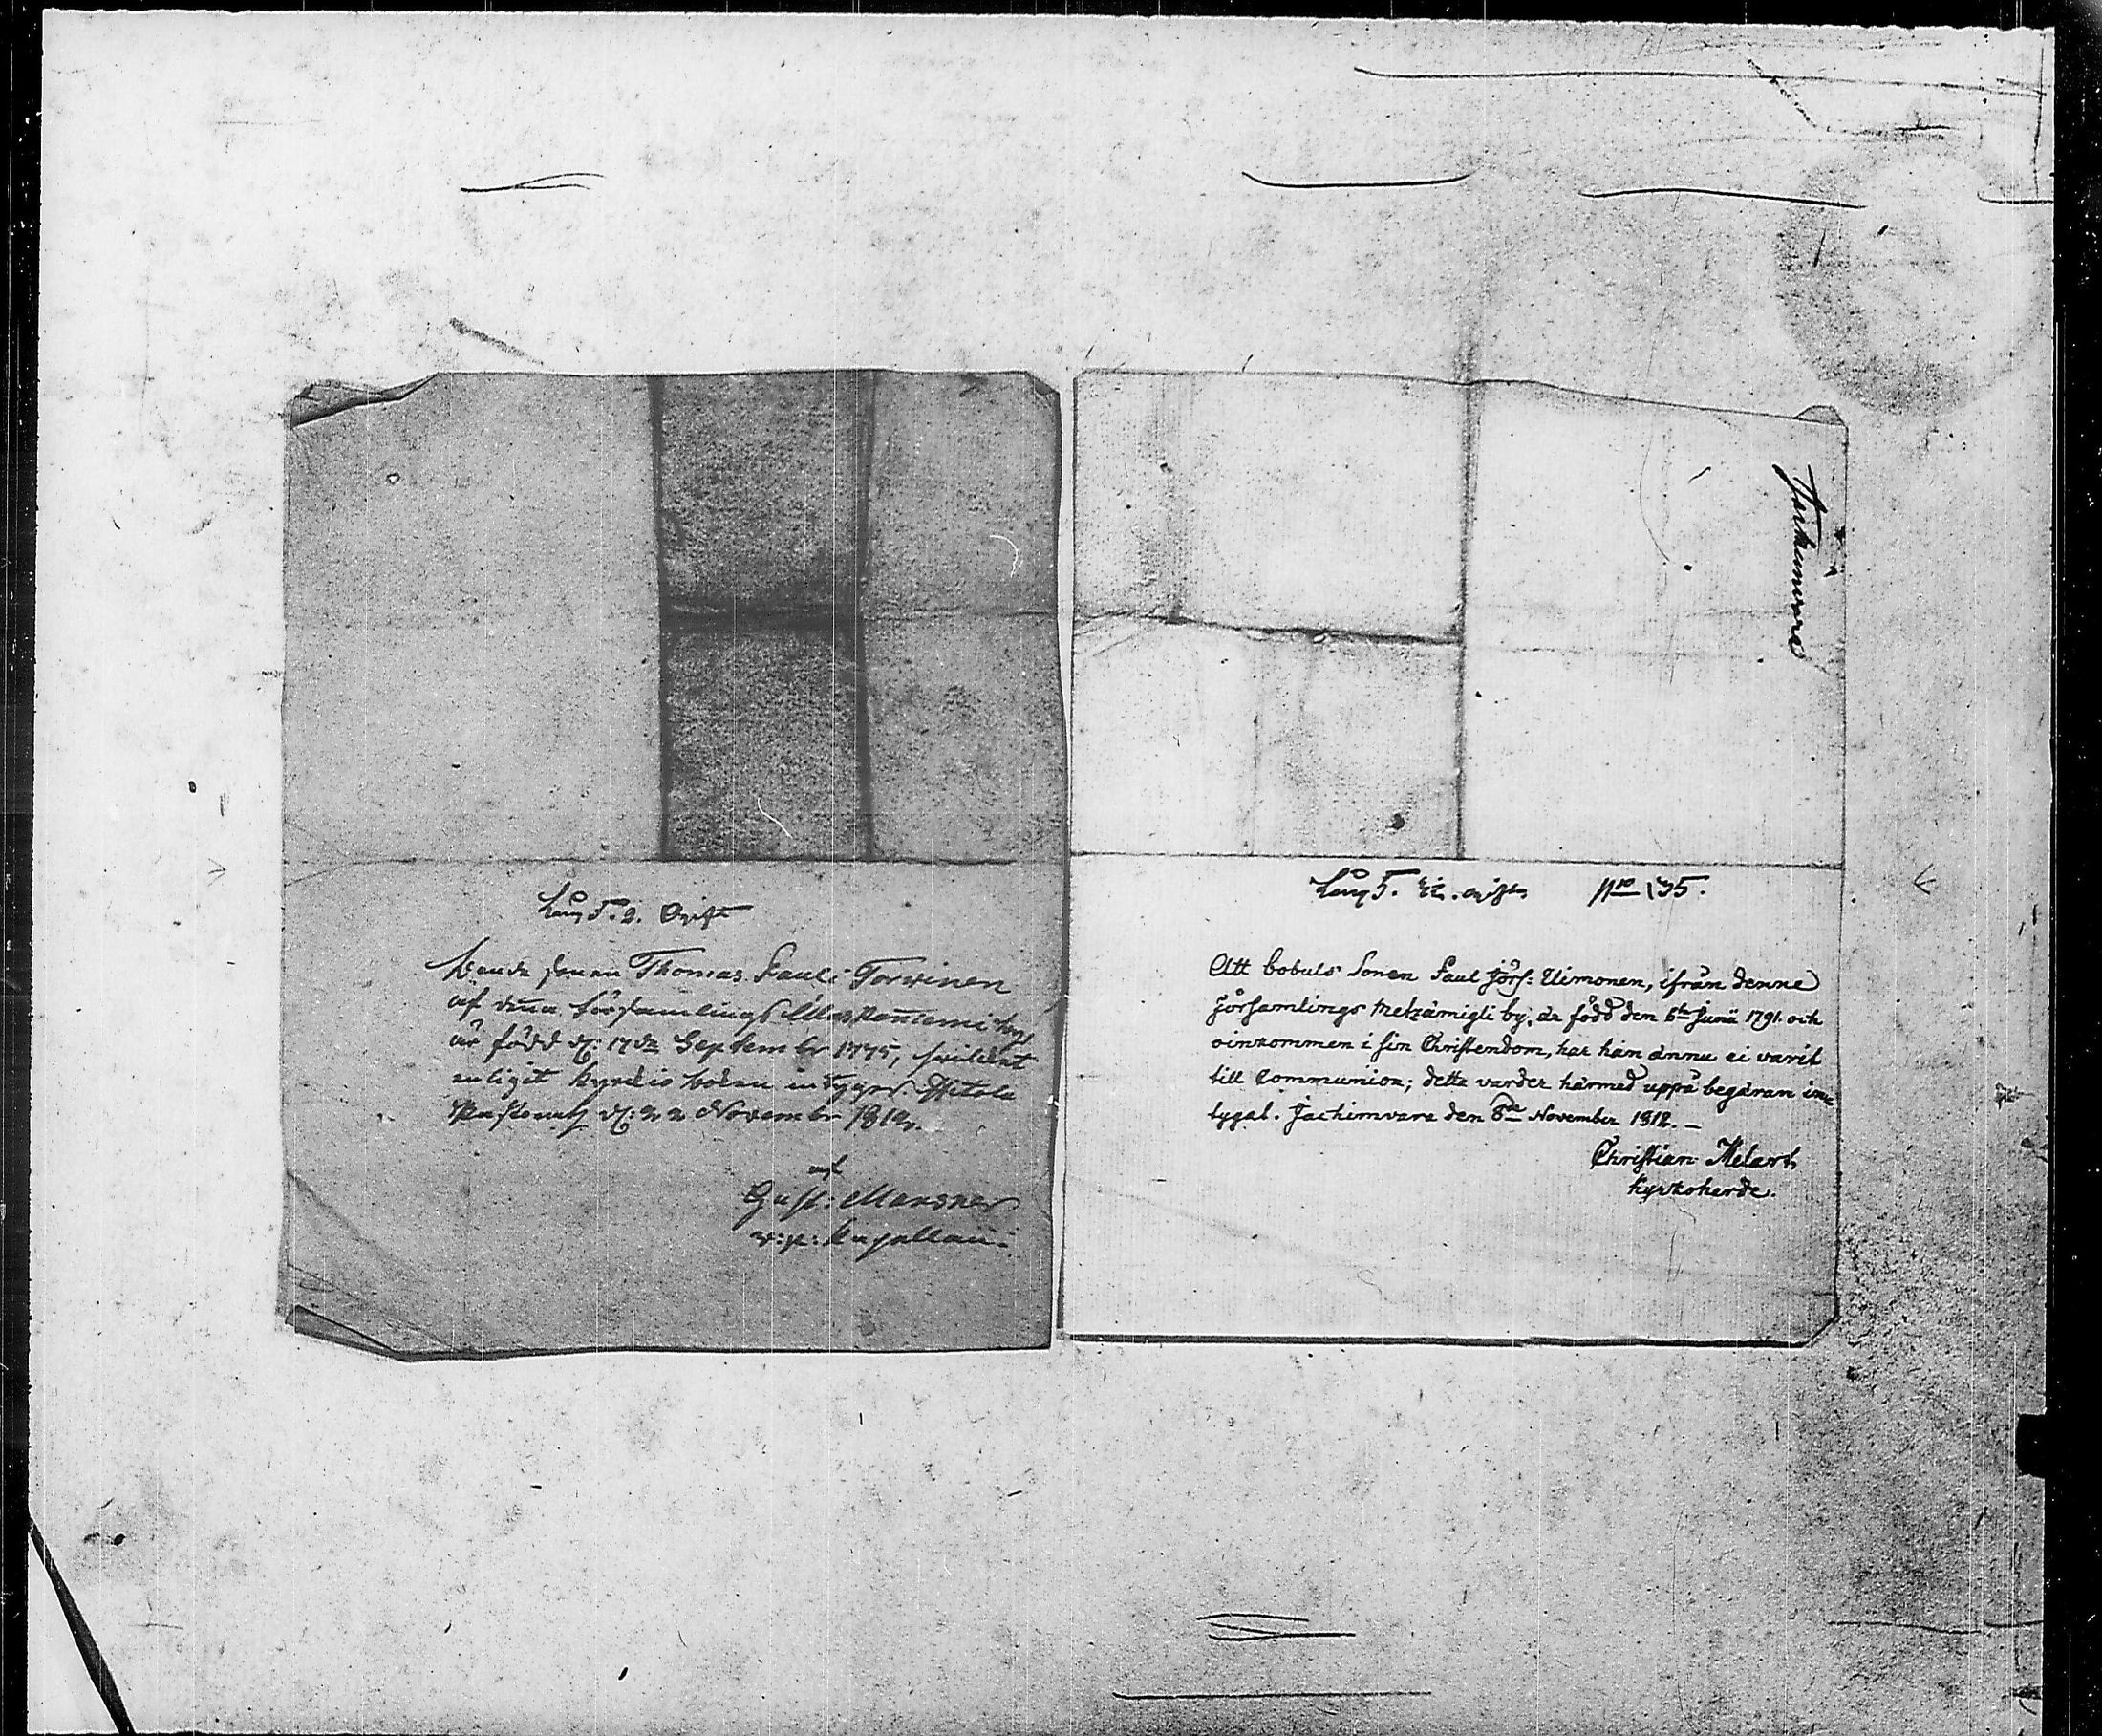 Lang 5. 2. Ogift
Bonde sonen Thomas Pauli Torvinen
af dena församlings Maskaniemi by,
är född d: 17de September 1775, hvilket
enligit Kyrckio boken intygas. Hitola
d: 22 November 1812.
af
Gust: Monsner
v: p: Capellan:
Jackimvara
Lang 5. ogift No 135.
Att bobuls Sonen Paul Jörs: Uimonen, ifrån denne
Församlings Metzämigli by, är född den 6te Junii 1791. och
oinkommen i sin Christendom, har han ännu ei varit
till Communion; detta varder härmed uppå begäran in-
tygat. Jachimvara den 8de November 1812. –
Christian Melart
Kyrkoherde.